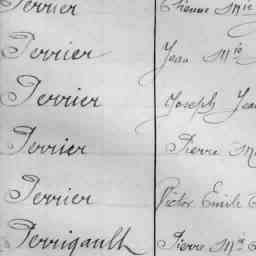 Perrier Etienne Mie
Perrier Jean Mie
Perrier Joseph Jean
Perrier Pierre M
Perrier Victor Emile
Perrigault Pierre Mie